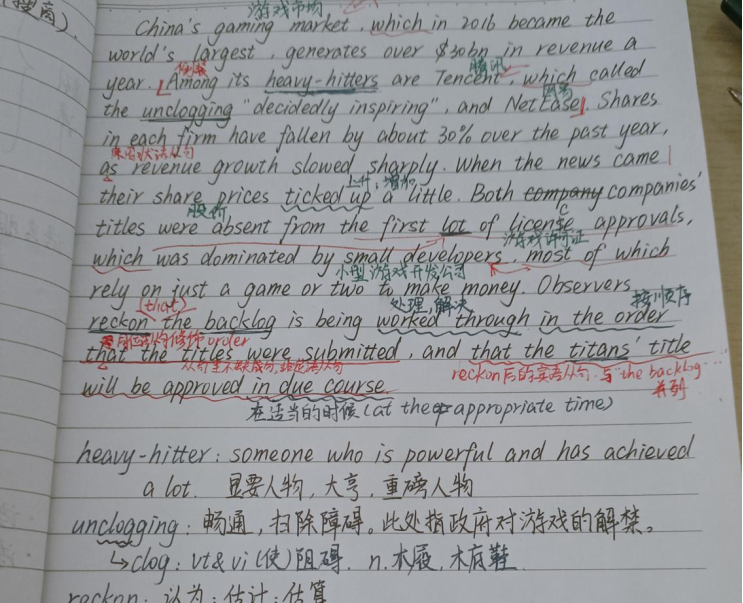 搜离).
游戏市场
China's gaming market, which in 2016 became the
world's largest, generates over $30bn in revenue a
倒装 腾讯
year. Among its heavy-hitters are Tencent, which called
网易
the unclogging "decidedly inspiring", and NetEase. Shares
in each firm have fallen by about 30% over the past year,
原因状语从句
as revenue growth slowed sharply. When the news came
上升,增加
their share prices ticked up a little. Both company companies'
股价 c
titles were absent from the first lot of license approvals,
游戏许可证
which was dominated by small developers, most of which
小型游戏开发公司
rely on just a game or two to make money. Observers
(that) 处理,解决 按顺序
reckon the backlog is being worked through in the order
同位语从句修饰order
that the titles were submitted, and that the titans' title
从句主不缺成分,非定语从句 reckon后的宾语从句.与"the backlog…
will be approved in due course. 并列
在适当的时候(at the appropriate time)
heavy-hitter: someone who is powerful and has achieved
a lot. 显要人物,大亨,重磅人物
unclogging: 畅通,扫除障碍。此处指政府对游戏的解禁。
↳clog: vt&vi (使)阻碍. n.木屐,木底鞋
reckon: 认为;估计;估算